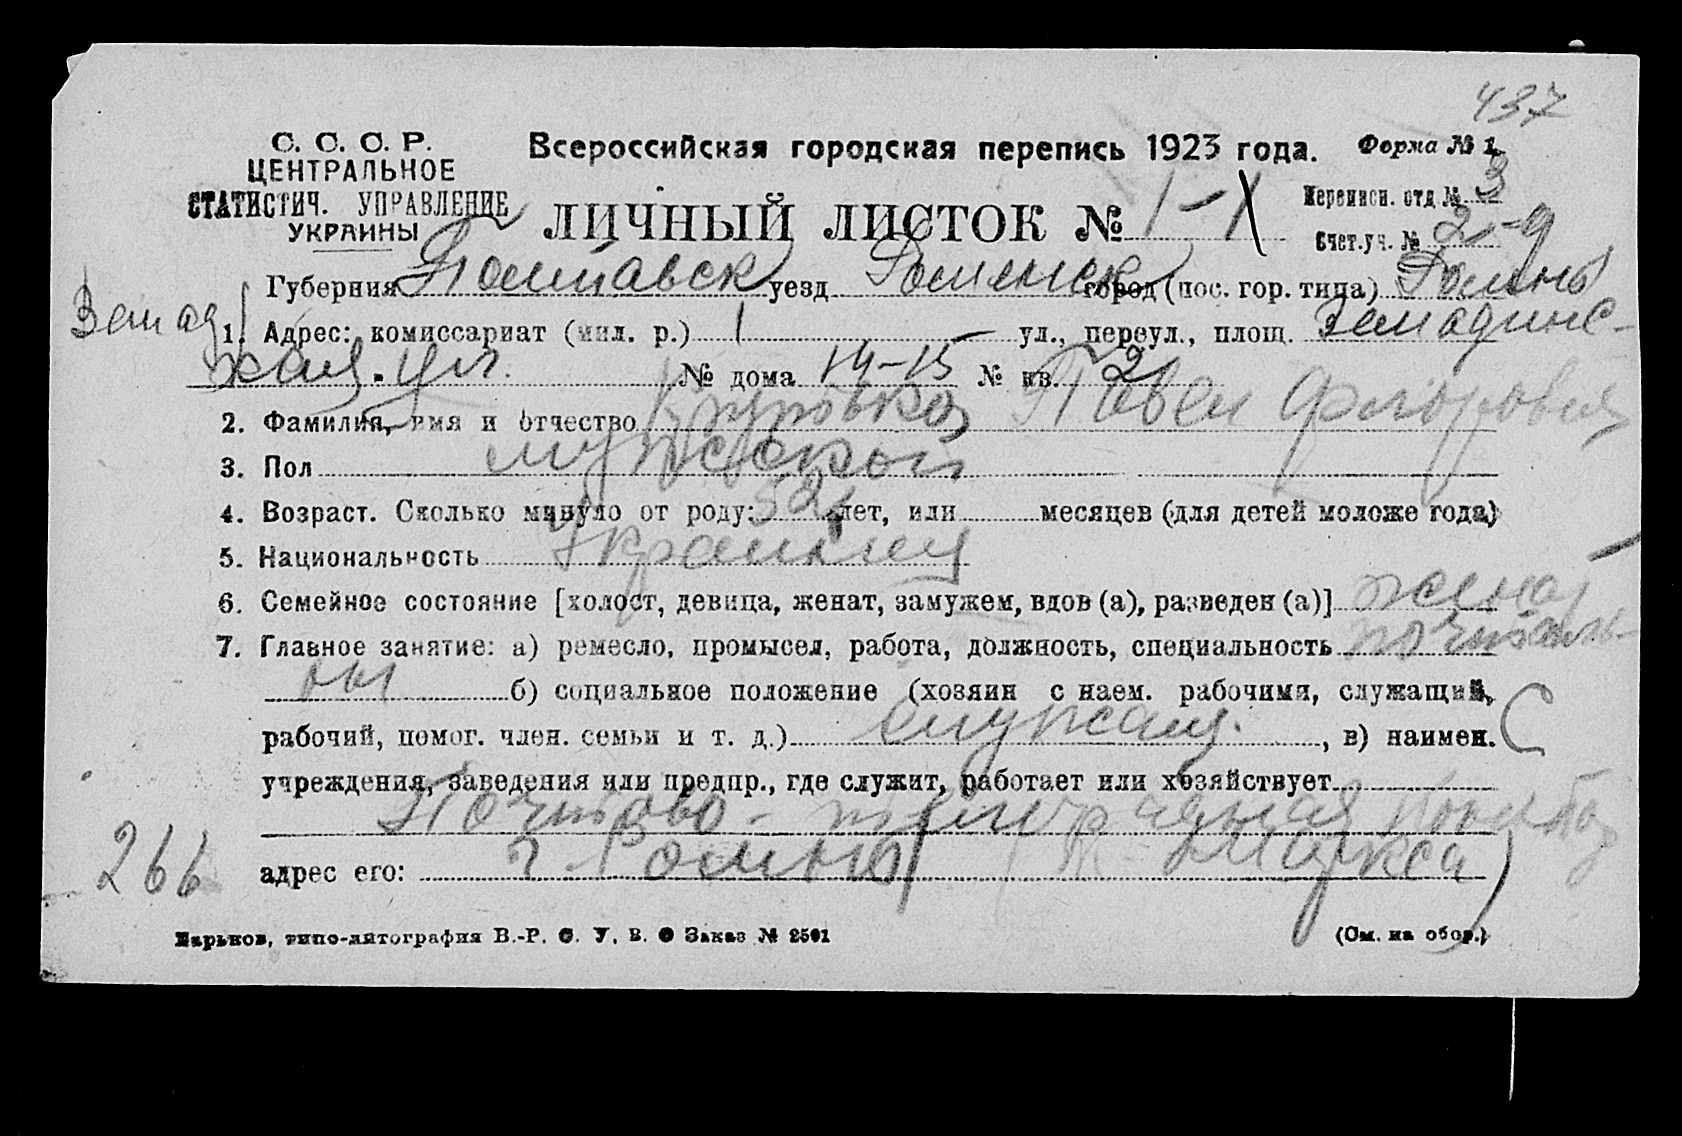 437
С. С. С. Р.
ЦЕНТРАЛЬНОЕ
СТАТИСТИЧ. УПРАВЛЕНИЕ
УКРАИНЫ
Всероссийская городская перепись 1923 года.
Форма № 1.
ЛИЧНЫЙ ЛИСТОК № 1-1
Переписн. отд. № 3
Счет. уч. №
Губерния Полтавск уезд Роменск город (пос. гор. типа) Ромны
1. Адрес: комиссариат (мил. р.) 1 ул., переул., площ.
кая ул. № дома 14-15 № кв. 2
2. Фамилия, имя и отчество Павел Флорович
3. Пол мужской
4. Возраст. Сколько минуло от роду: 52 лет, или месяцев (для детей моложе года)
5. Национальность Украинец
6. Семейное состояние [холост, девица, женат, замужем, вдов (а), разведен (а)] женат
7. Главное занятие: а) ремесло, промысел, работа, должность, специальность почталь-
он б) социальное положение (хозяин с наем. рабочими, служащий,
рабочий, помог. член. семьи и т. д.) служащ. , в) наимен.
учреждения, заведения или предпр., где служит, работает или хозяйствует
Почтово-телеграфная контора
266
адрес его: г. Ромны К. Маркса
Харьков, типо-литография В.-Р. С. У. В. О Заказ № 2501
(См. на обор.)